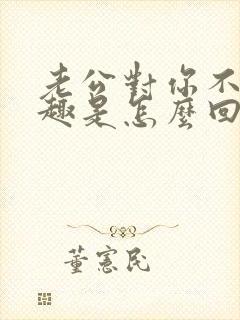 老公對你不
趣是怎麼回
董憲民